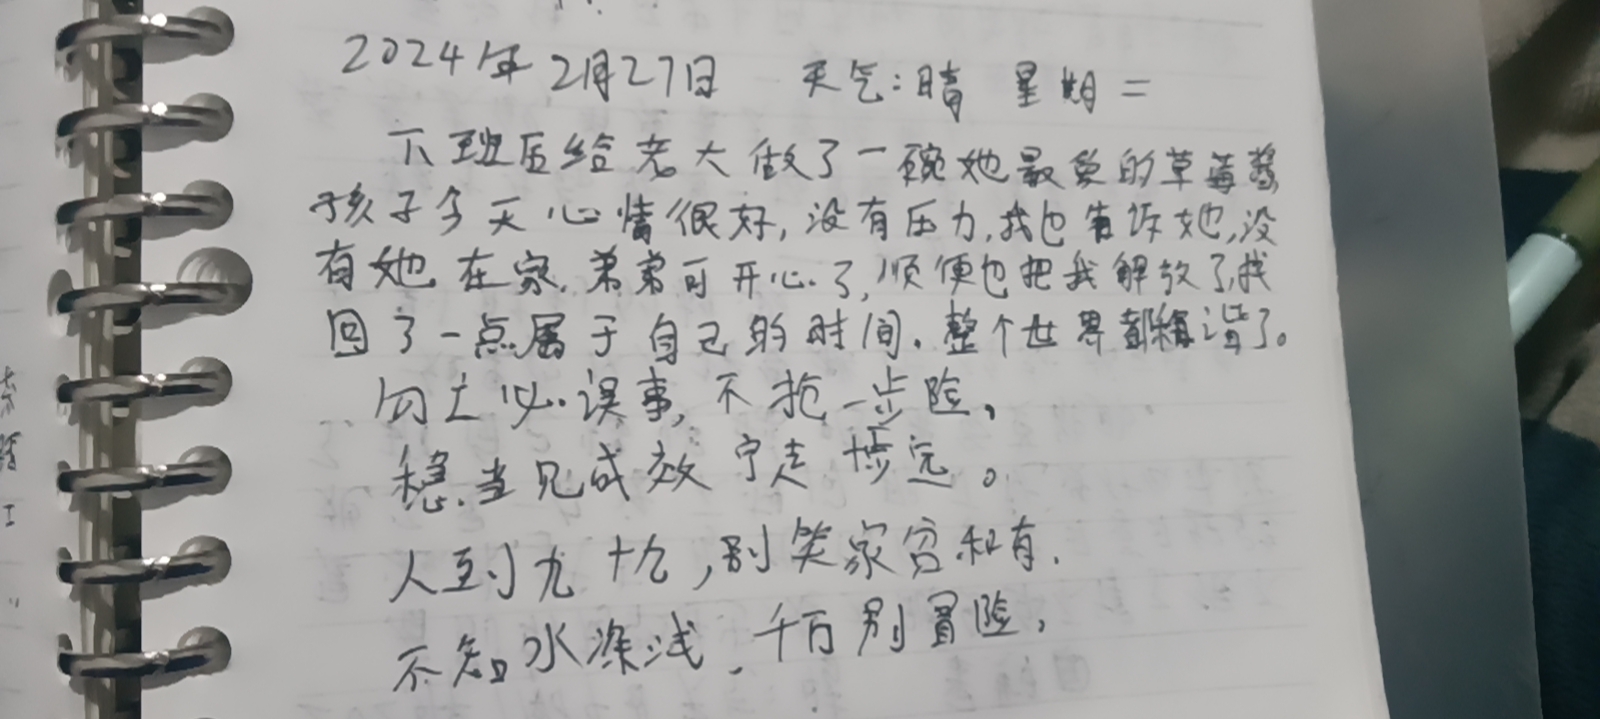 2024年2月27日 天气:晴 星期二
下班后给老大做了一碗她最爱的草莓酱
孩子今天心情很好,没有压力,我也告诉她,没
有她在家,弟弟可开心了,顺便也把我解放了,找
回了一点属于自己的时间。整个世界都和谐了。
勿土必误事,不抢一步险,
稳当见成效 宁走十步远。
人到九十九,别笑家穷和有.
不知水深浅,千万别冒险,